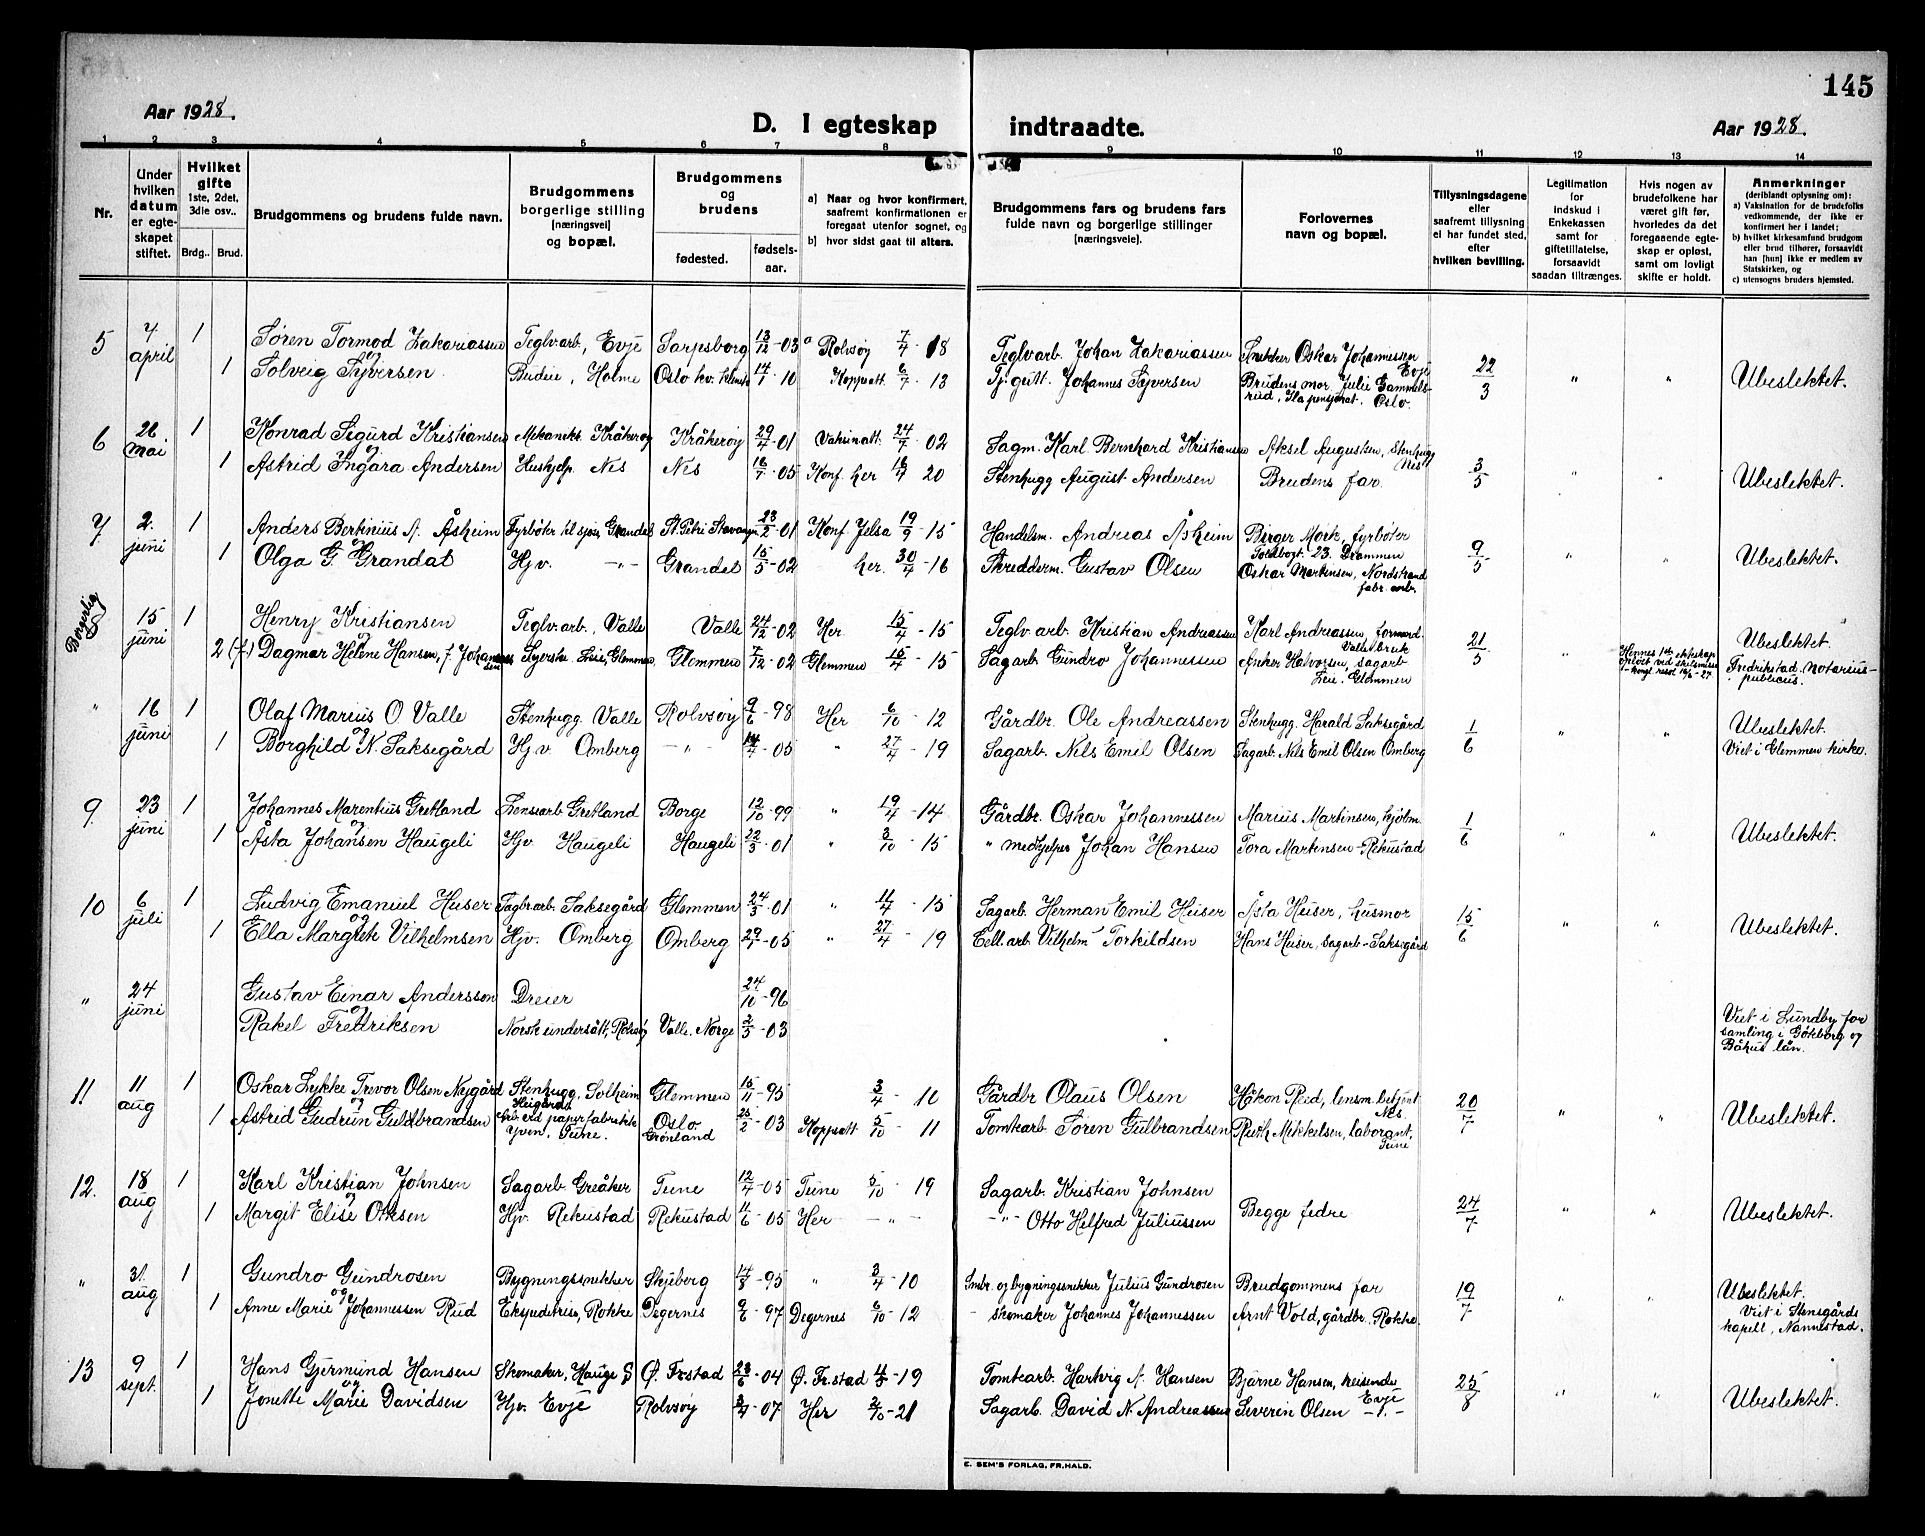 145
Aar 1928.
D. I egteskap indtraadte.
Aar 1928.
1 2 3 4 5 6 7 8 9 10 11 12 13 14
Nr.
Under hvilken datum er egteskapet stiftet.
Hvilket gifte 1ste, 2det, 3die osv..
Brdg.. Brud.
Brudgommens og brudens fulde navn.
Brudgommens borgerlige stilling [næringsvei] og bopæl.
Brudgommens og brudens
fødested.
fødsels-aar.
a) Naar og hvor konfirmert, saafremt konfirmationen er foregaat utenfor sognet, og
b) hvor sidst gaat til alters.
Brudgommens fars og brudens fars fulde navn og borgerlige stillinger [næringsveie].
Forlovernes navn og bopæl.
Tillysningsdagene eller saafremt tillysning ei har fundet sted, efter hvilken bevilling.
Legitimation for indskud i Enkekassen samt for giftetillatelse, forsaavidt saadan tiltrænges.
Hvis nogen av brudefolkene har været gift før, hvorledes da det foregaaende egteskap er opløst, samt om lovligt skifte er holdt.
Anmerkninger (deriblandt oplysning om):
a) Vaksination for de brudefolks vedkommende, der ikke er konfirmert her i landet;
b) hvilket kirkesamfund brudgom eller brud tilhører, forsaavidt han [hun] ikke er medlem av Statskirken, og
c) utensogns bruders hjemsted.
5 7 april 1 Søren Tormod Zakariassen Teglv.arb, Evje Sarpsborg 13/12-03 a Rolvsøy 7/4-18 Teglv.arb. Johan Zakariassen Snekker Oskar Johannessen Evje 22/3 " "
og
1 Solveig Syversen Budeie, Holme Oslo 14/1 10 Koppvatt. 6/7-13 Tj.gutt. Johannes Syversen Brudens mor, Julie Gammelsrud, Ila pensjonat. Oslo. Ubeslektet.
6 26 mai 1 Konrad Sigurd Kristiansen Mekaniks. Kråkerøy Kråkerøy 29/4-01 Vaksinatt. 24/7-02 Sagm. Karl Bernhard Kristiansen Aksel Augustsen, Stenhugg Nes 3/5 " "
og
1 Astrid Ingara Andersen Hushjelp Nes Nes 16/7-05 Konf. her 20 Stenhugg August Andersen Brudens far. Ubeslektet.
7 2. juni 1 Anders Berkinius A. Åsheim Fyrbøter til sjøs, Grandal St. Petri Stavanger 23/2-01 Konf. Jelsa 19/9-15 Handelsm. Andreas Åsheim Birger Mork, fyrbøter Toldbogt. 23. Drammen 9/5 " "
og
1 Olga G. Grandal Hjv. -"- Grandal 15/5-02 her. 30/4-16 Skredderm. Gustav Olsen Oskar Martinsen, Nordstrand fabr. arb. Ubeslektet.
Borgerlig
8 15 juni 1 Henry Kristiansen Teglv.arb., Valle Valle 24/12-02 Her. 15/4-15 Teglv.arb. Kristian Andreassen Karl Andreassen, formand. Valle bruk 21/5 "
og
2 (÷) Dagmar Helene Hansen, f. Johannessen Syerske. Leie, Glemmen Glemmen 7/12-02 Glemmen 15/4-15 Sagarb. Gundro Johannessen Anker Halvorsen, sagarb Leie. Glemmen
Hennes 1ste ekteskap opløst ved skilsmisse
Ubeslektet. Fredrikstad. notarius-publicus.
" 16 juni 1 Olaf Marius O Valle Stenhugg. Valle Rolvsøy 9/6-98 Her 6/10-12 Gårdbr. Ole Andreassen Stenhugg. Harald Saksegård 1/6 " "
og
1 Borghild N. Saksegård Hjv Omberg -"- 14/4-05 " 27/4-19 Sagarb. Nils Emil Olsen Sagarb. Nils Emil Olsen Omberg
Ubeslektet. Viet i Glemmen kirke.
9. 23 juni 1 Johannes Marentius Gretland Lensearb Gretland Borge 12/10-99 " 19/4-14 Gårdbr. Oskar Johannessen Marius Martinsen, hjolm. 1/6 " "
og
1 Åsta Johansen Haugeli Hjv. Haugeli Haugeli 22/3-01 " 3/10-15 " medhjelper Johan Hansen Tora Martinsen-Rekustad Ubeslektet.
10 6 juli 1 Ludvig Emanuel Huser Sagbr.arb. Saksegård Glemmen 24/3-01 " 11/4-15 Sagarb. Herman Emil Huser Åsta Huser, husmor 15/6 " "
og
1 Ella Margrete Vilhelmsen Hjv. Omberg Omberg 29/4-05 " 27/4-19 Cell.arb Vilhelm Torkildsen Hans Huser, sagarb-Saksegård Ubeslektet.
" 24 juni Gustav Einar Andersson Dreier 24/10-96
og
Rakel Fredriksen Norsk undersått, Rolvsøy Valle. Norge 2/3-03
Viet i Lundby forsamling i Göteborg og Båhus län.
11. 11 aug 1 Oskar Lykke Trevor Olsen Nygård Stenhugg. Solheim Glemmen 15/11-95 3/4-10 Gårdbr Olaus Olsen Håkon Rud, lensm.betjent Nes. 20/7 " "
og
1 Astrid Gudrun Guldbrandsen Arb. ved papirfabrikk Yven, Tune. Oslo Grønland 25/2-03 Koppvatt 5/10-11 Tomtearb Søren Gulbrandsen Ruth Mikkelsen, laborant, Tune Ubeslektet.
12. 18 aug 1 Karl Kristian Johnsen Sagarb. Greåker Tune 12/4-05 Tune 5/10-19 Sagarb. Kristian Johnsen
og
1 Margit Elise Ottsen Hjv. Rekustad Rekustad 11/6-05 Her -"- -"- Otto Helfred Juliussen Begge fedre 24/7 " " Ubeslektet.
" 31. aug 1 Gundro Gundrosen Bygningssnekker Skjeberg 14/8-95 " 3/4-10 Smbr. og bygningssnekker Julius Gundrosen Brudgommens far 19/7 " "
og
1 Anne Marie Johannessen Rud Ekspeditrise, Rokke Degernes 9/6-97 Degernes 6/10-12 skomaker Johannes Johannessen Arnt Vold, gårdbr. Rokke
Ubeslektet. Viet i Stensgårds kapell, Nannestad.
13 9 sept. 1 Hans Gjermund Hansen Skomaker, Hauge S Ø. Frstad 23/6-04 Ø. Fr.stad 4/5-19 Tomtearb. Hartvig A. Hansen Bjarne Hansen, reisende Evje 25/8 " "
og
1 Jonette Marie Davidsen Hjv. Evje Rolvsøy 3/4-07 Her 2/10-21 Sagarb. David N. Andreassen Severin Olsen -"- Ubeslektet.
E. SEM'S FORLAG, FR.HALD.